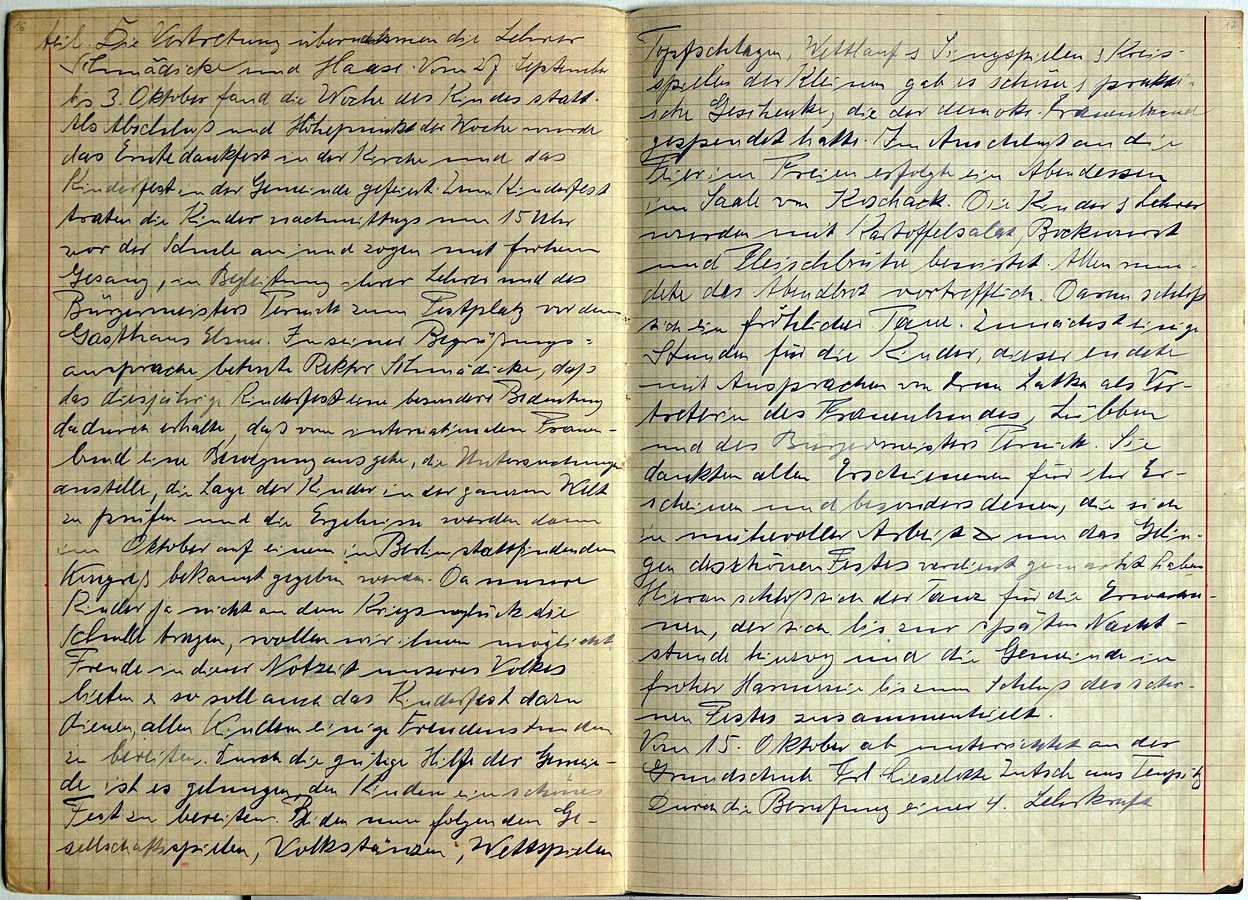 16
teil. Die Vertretung übernahmen die Lehrer
Schmädicke und Haase. Vom 27. September
bis 3. Oktober fand die Woche des Kindes statt.
Als Abschluß und Höhepunkt der Woche wurde
das Erntedankfest in der Kirche und das
Kinderfest in der Gemeinde gefeiert. Zum Kinderfest
traten die Kinder nachmittags um 15 Uhr
vor der Schule an und zogen mit frohem
Gesang, in Begleitung ihrer Lehrer und des
Bürgermeisters Pernick zum Festplatz vor dem
Gasthaus Elsner. In seiner Begrüßungs=
ansprache betonte Rektor Schmädicke, daß
das diesjährige Kinderfest eine besondere Bedeutung
dadurch erhalte, daß vom internationalen Frauen-
bund eine Bewegung ausgehe, die Untersuchungen
anstelle, die Lage der Kinder in der ganzen Welt
zu prüfen und die Ergebnisse werden dann
im Oktober auf einem in Berlin stattfindenden
Kongreß bekannt gegeben werden. Da unsere
Kinder ja nicht an dem Kriegsunglück die
Schuld tragen, wollen wir ihnen möglichst
Freude in dieser Notzeit unseres Volkes
bieten & so soll auch das Kinderfest dazu
dienen, allen Kindern einige Freudenstunden
zu bereiten. Durch die gütige Hilfe der Gemein-
de ist es gelungen, den Kindern ein schönes
Fest zu bereiten. Bei den nun folgenden Ge-
sellschaftsspielen, Volkstänzen, Wettspielen
17
Topfschlagen, Wettlauf & Singspielen & Kreis-
spielen der Kleinen gab es schöne & prakti-
sche Geschenke, die der demokr. Frauenbund
gespendet hatte. Im Anschluß an die
Feier im Freien erfolgte ein Abendessen
im Saale von Koschack. Die Kinder & Lehrer
wurden mit Kartoffelsalat, Bockwurst
und Fleischbrühe bewirtet. Allen mun-
dete das Abendbrot vortrefflich. Daran schloß
sich ein fröhlicher Tanz. Zunächst einige
Stunden für die Kinder, dieser endete
mit Ansprachen von Frau Latka als Ver-
treterin des Frauenbundes, Lübben
und des Bürgermeisters Pernick. Sie
dankten allen Erschienenen für ihr Er-
scheinen und besonders denen, die sich
in mühevoller Arbeit um das Gelin-
gen des schönen Festes verdient gemacht haben
Hieran schloß sich der Tanz für die Erwachse-
nen, der sich bis zur späten Nacht-
stunde hinzog und die Gemeinde in
froher Harmonie bis zum Schluß des schö-
nen Festes zusammenhielt.
Vom 15. Oktober ab unterrichtet an der
Grundschule Frl. Lieselotte Zutsch aus Teupitz
Durch die Berufung einer 4. Lehrkraft